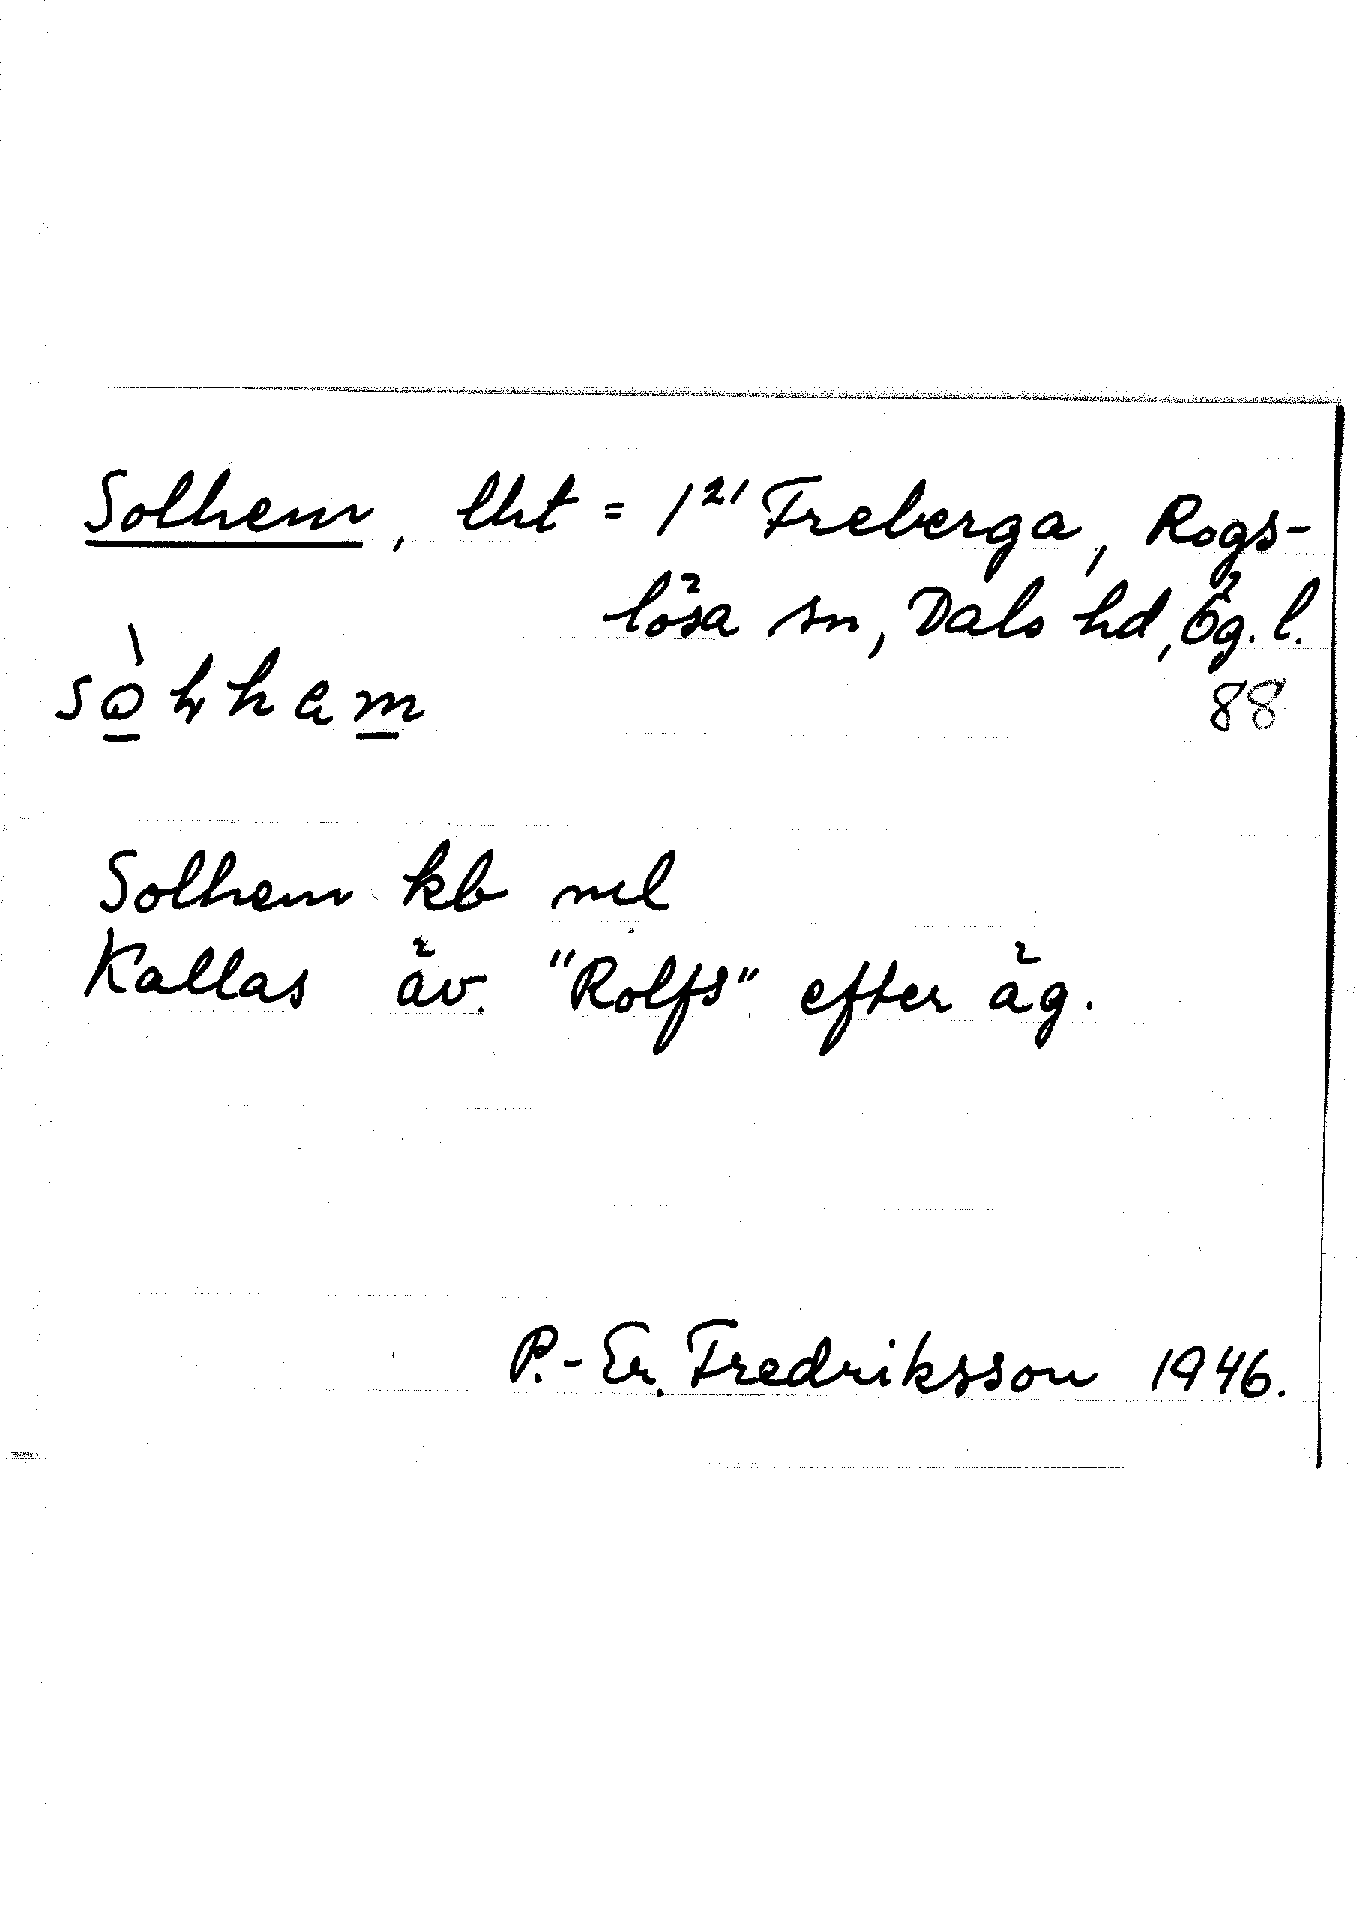 Solhem, lht = 1²¹ Freberga, Rogs-
lösa sn, Dals hd, Ög. l.
88
Solhem kb ml
Kallas äv. "Rolfs" efter äg.
P.-Er. Fredriksson 1946.